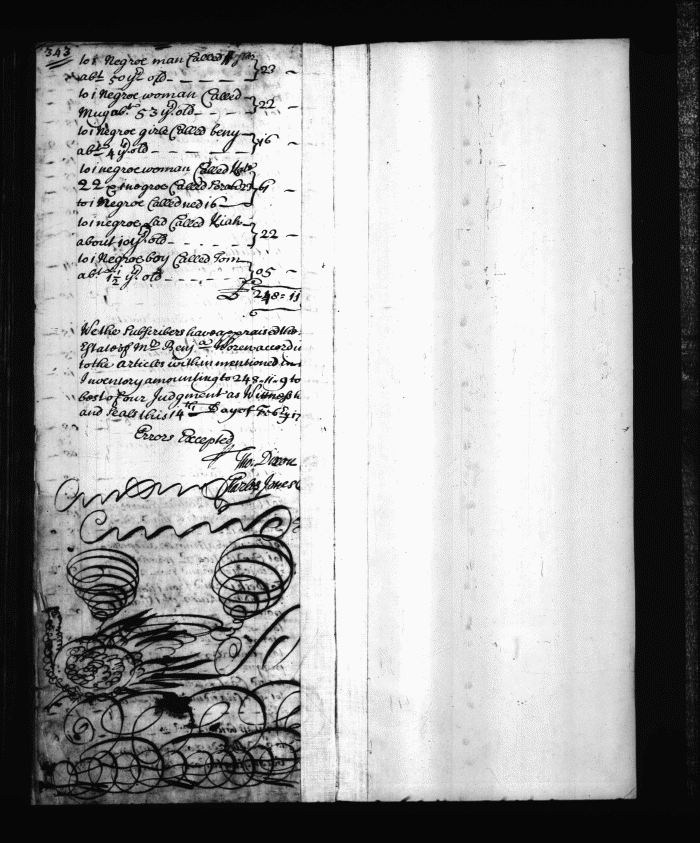 343
to 1 Negroe man Called
abt 50 yr old 23 –
to 1 Negroe woman Called
Mug abt 53 yr old 22 –
to 1 Negroe girle Called beny
abt 4 yr old 16 –
to 1 negroe woman Called Kate
22 negroe Called
to 1 Negroe Called ned 16
to 1 negroe Lad Called Kiah
about 10 yr old 22 –
to 1 Negroe boy Called Tom
abt 1 1/2 yr old 05 –
£ 248=11
We the Subscribers have appraised the
Estate of Mr Benj a Wozen accord
to the articles within mentioned in
Inventory amounting to 248-11-9 to
best of our Judgment as Witness
and Seals this 14th Day of Febry 17
Errors Excepted
Tho: Dixon
Charles Jones